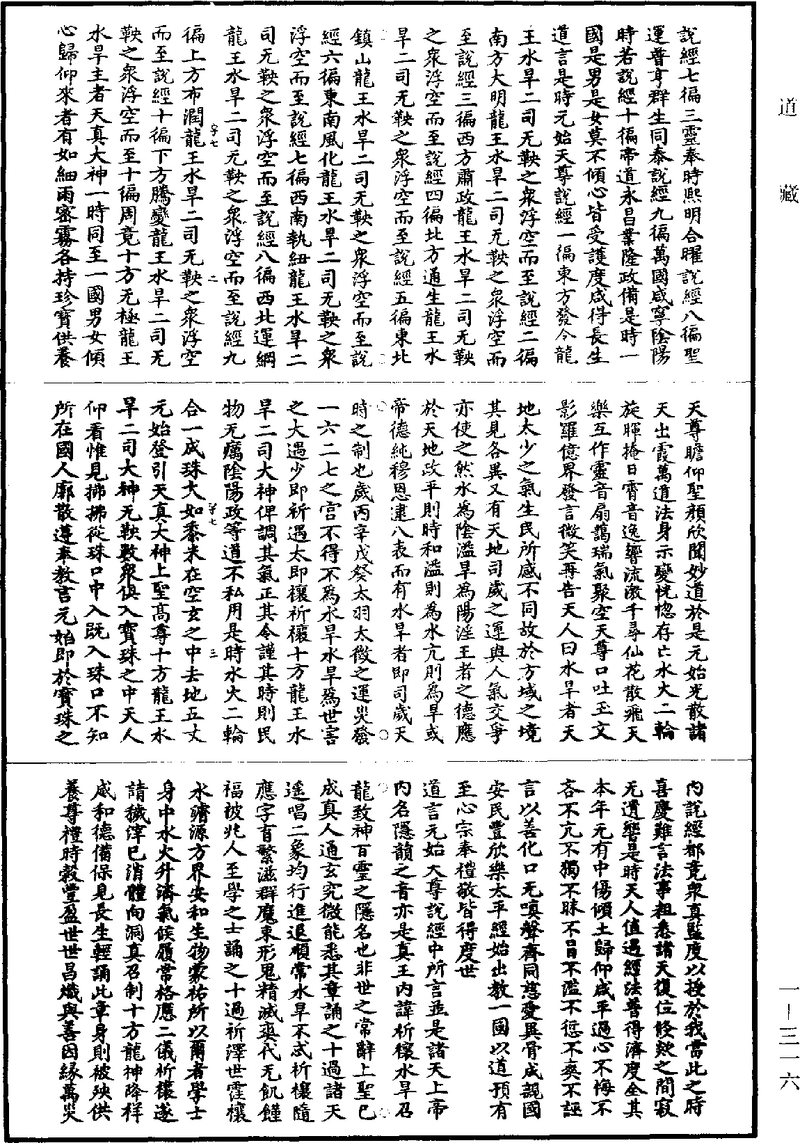 道藏
說經七徧三靈奉時熙明合曜說經八徧聖
運普亨群生同泰說經九徧萬國咸寧陰陽
時若說經十徧帝道永昌業隆政備是時一
國是男是女莫不傾心皆受護度咸得長生
道言是時元始天尊說經一徧東方發令龍
王水旱二司无鞅之衆浮空而至說經二徧
南方大明龍王水旱二司无鞅之衆浮空而
至說經三徧西方肅政龍王水旱二司无鞅
之衆浮空而至說經四徧北方通生龍王水
旱二司无鞅之衆浮空而至說經五徧東北
鎮山龍王水旱二司无鞅之衆浮空而至說
經六徧東南風化龍王水旱二司无鞅之衆
浮空而至說經七徧西南執紐龍王水旱二
司无鞅之衆浮空而至說經八徧西北運綱
龍王水旱二司无鞅之衆浮空而至說經九
字七 二
徧上方布潤龍王水旱二司无鞅之衆浮空
而至說經十徧下方騰變龍王水旱二司无
鞅之衆浮空而至十徧周竟十方无極龍王
水旱主者天真大神一時同至一國男女傾
心歸仰來者有如細雨密霧各持珍寶供養
天尊瞻仰聖顏欣聞妙道於是元始光散諸
天出霞萬道法身示變恍惚存亡水火二輪
旋暉掩日霄音逸響流激千尋仙花散飛天
樂互作靈音扇藹瑞氣聚空天尊口吐玉文
影羅億界發言微笑再告天人曰水旱者天
地太少之氣生民所感不同故於方域之境
其見各異又有天地司歲之運與人氣交爭
亦使之然水為陰溢旱為陽淫王者之德應
於天地政平則時和溢則為水亢則為旱或
帝德純穆恩逮八表而有水旱者即司歲天
時之制也歲丙辛戊癸太羽太徵之運災發
一六二七之宮不得不為水旱水旱為世害
之大過少即祈遇太即禳祈禳十方龍王水
旱二司大神俾調其氣正其令謹其時則民
物无癘陰陽政等道不私用是時水火二輪
字七 三
合一成珠大如黍米在空玄之中去地五丈
元始登引天真大神上聖高尊十方龍王水
旱二司大神无鞅數衆俱入寶珠之中天人
仰看惟見拂拂從珠口中入既入珠口不知
所在國人廓散遵奉教言元始即於寶珠之
內說經都竟衆真監度以授於我當此之時
喜慶難言法事粗悉諸天復位倐欻之間寂
无遺響是時天人值遇經法普得濟度全其
本年元有中傷傾土歸仰咸平過心不悔不
吝不亢不獨不昧不昌不濫不愆不奕不誣
言以善化口无嗔聲齊同慈愛異骨成親國
安民豐欣樂太平經始出教一國以道預有
至心宗奉禮敬皆得度世
道言元始天尊說經中所言並是諸天上帝
內名隱韻之音亦是真王內諱祈禳水旱召
龍致神百靈之隱名也非世之常辭上聖已
成真人通玄究微能悉其章誦之十過諸天
遥唱二象均行進退順常水旱不忒祈禳隨
應字育繁滋群魔束形鬼精滅爽代无飢饉
福被兆人至學之士誦之十過祈澤世霔禳
水濟源方界安和生物蒙祐所以爾者學士
身中水火升濟氣候履當格應二儀祈禳遂
請穢滓已消體向洞真召制十方龍神降祥
咸和德備保見長生輕誦此章身則被殃供
養尊禮時穀豐盈世世昌熾與善因緣萬災
一—三一六